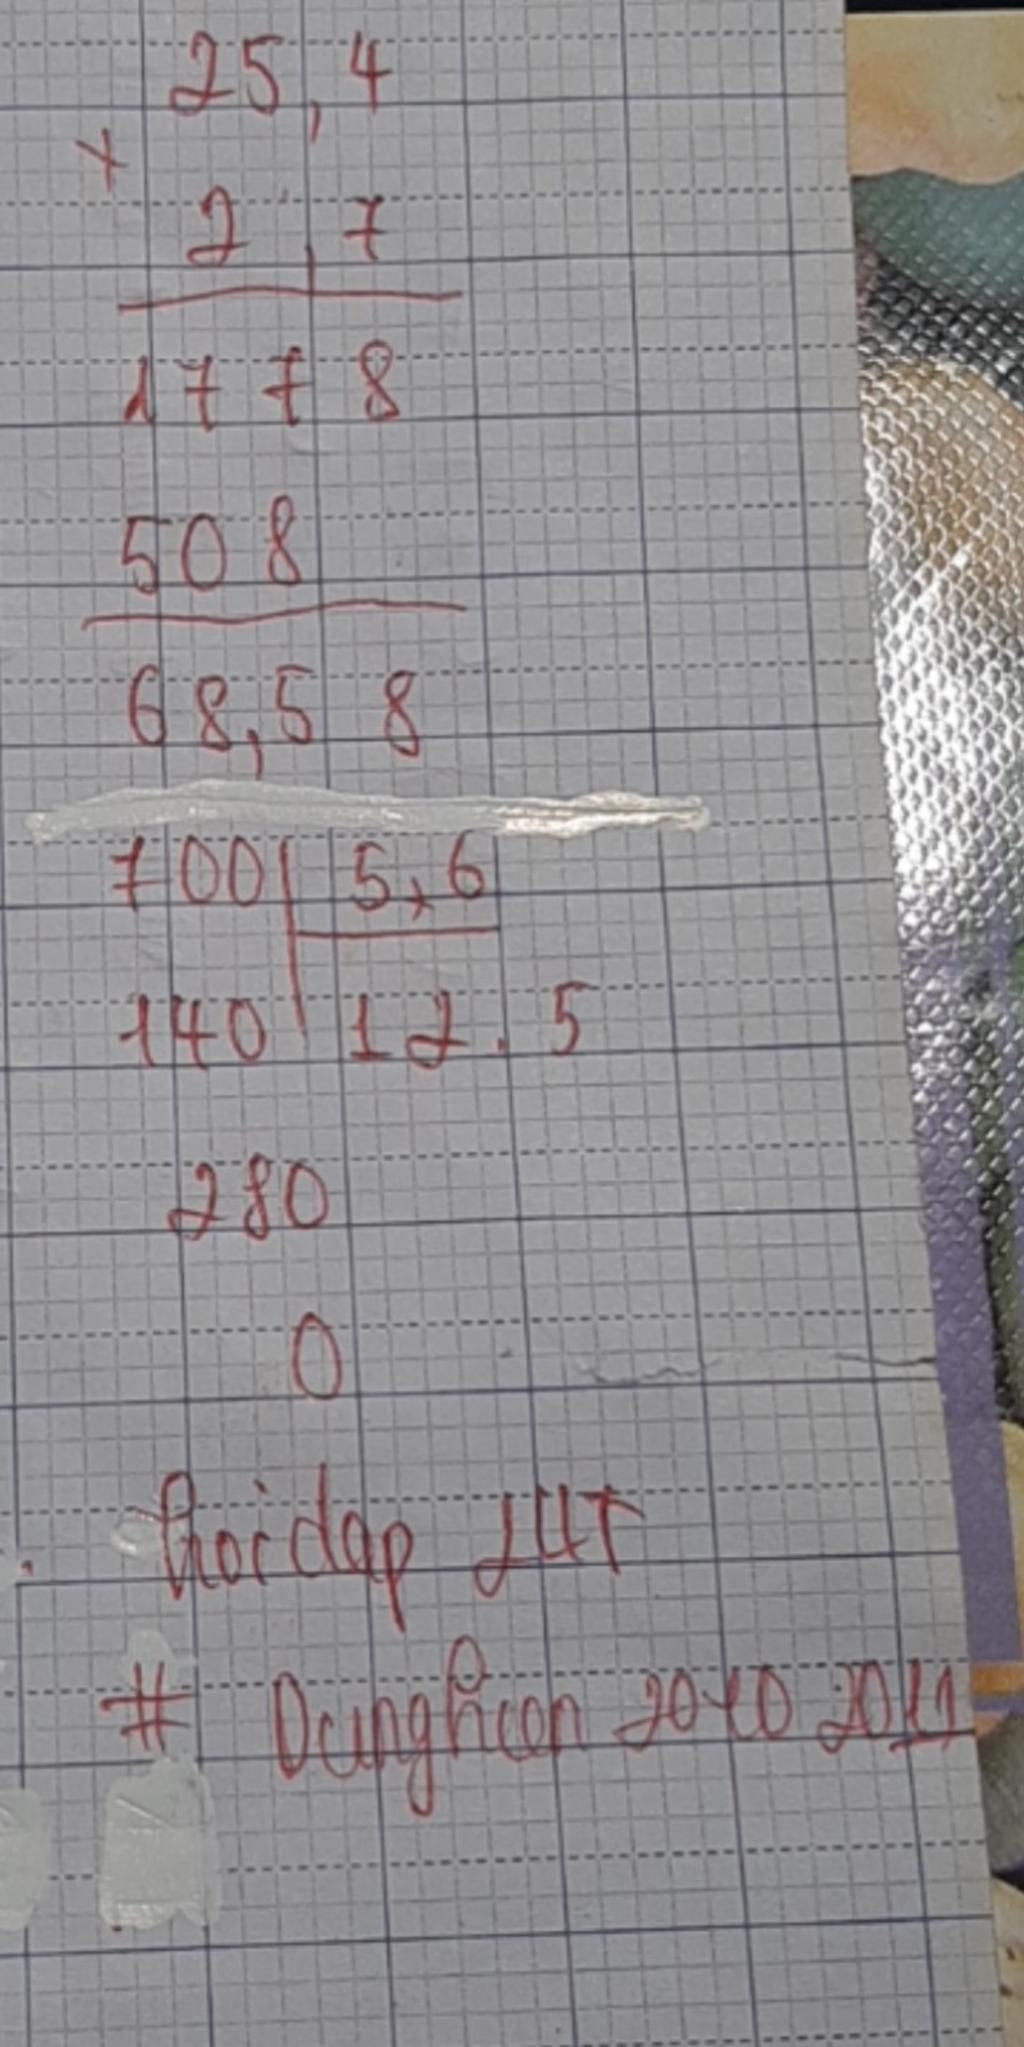 25,4
×
2,7
1778
508
68,58
700 5,6
140 12.5
280
0
hoidap 247
# Dunghcon 2010 2011